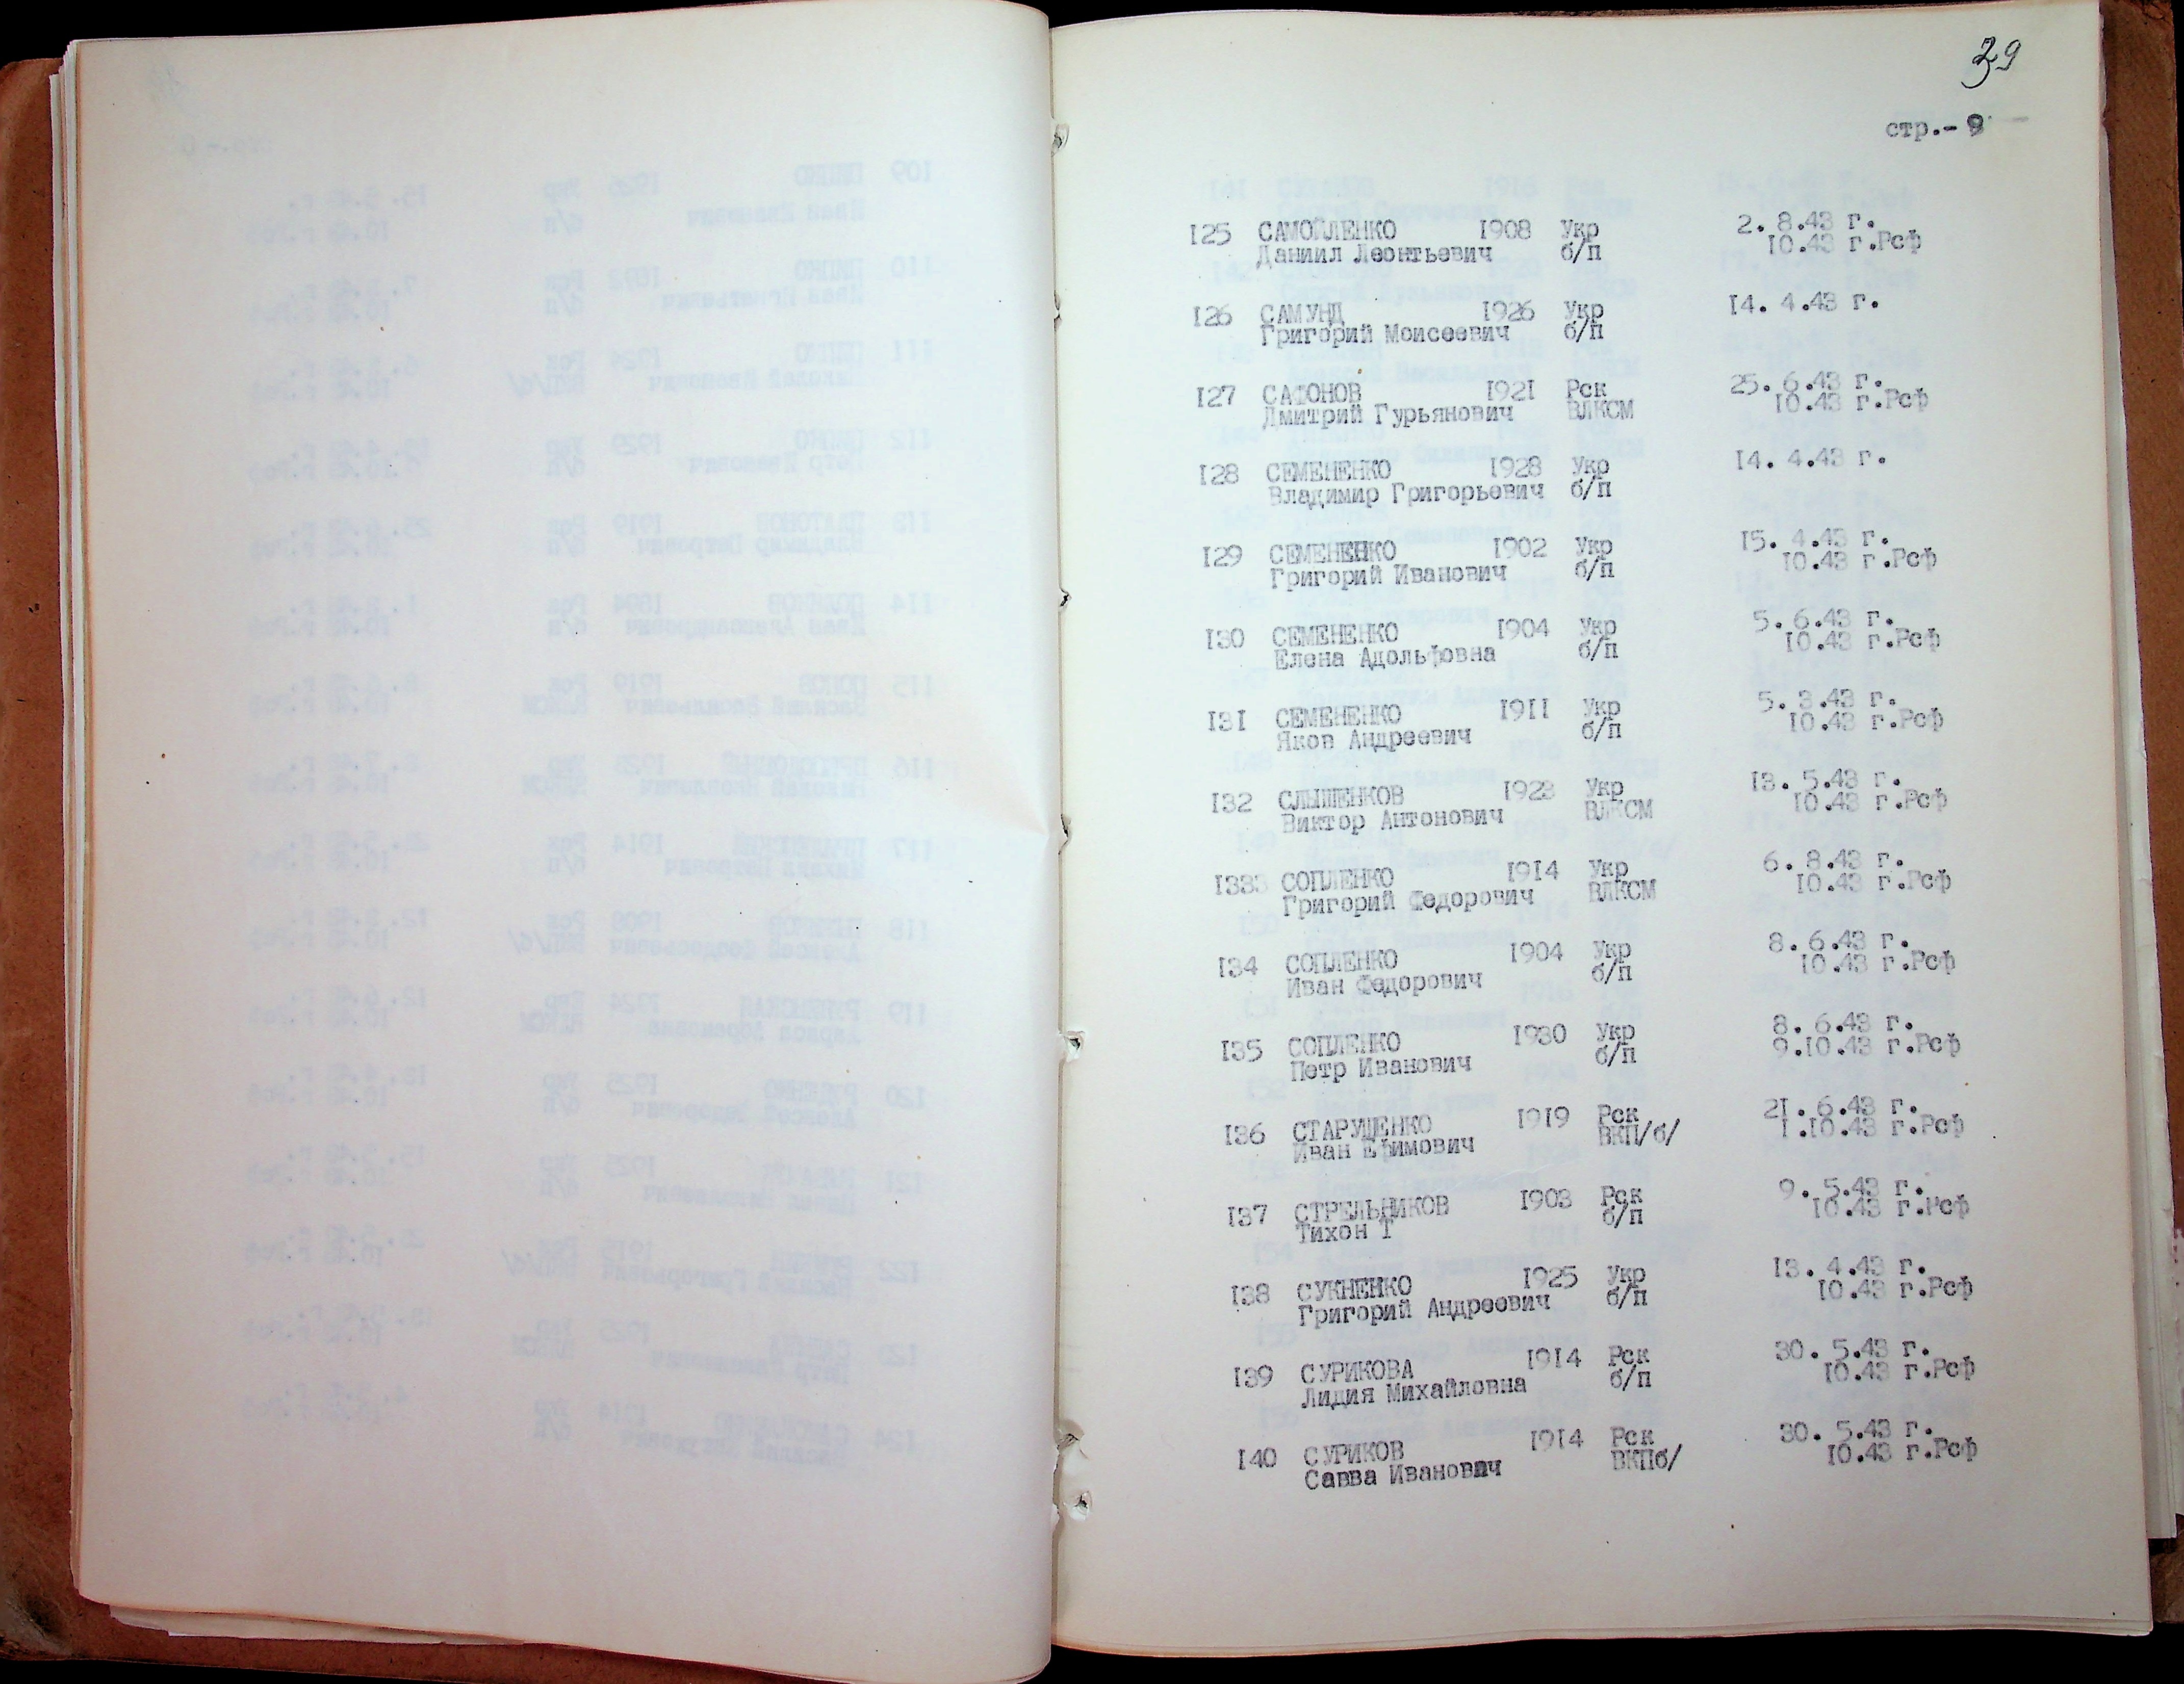 39
стр.- 9
125 САМОЙЛЕНКО 1908 Укр 2. 8.43 г.
Даниил Леонтьевич б/п 10.43 г.Рсф
126 САМУНД 1926 Укр 14. 4.43 г.
Григорий Моисеевич б/п
127 САФОНОВ 1921 Рск 25. 6.43 г.
Дмитрий Гурьянович ВЛКСМ 10.43 г.Рсф
128 СЕМЕНЕНКО 1928 Укр 14. 4.43 г.
Владимир Григорьевич б/п
129 СЕМЕНЕНКО 1902 Укр 15. 4.43 г.
Григорий Иванович б/п 10.43 г.Рсф
130 СЕМЕНЕНКО 1904 Укр 5. 6.43 г.
Елена Адольфовна б/п 10.43 г.Рсф
131 СЕМЕНЕНКО 1911 Укр 5. 3.43 г.
Яков Андреевич б/п 10.43 г.Рсф
132 СЛЫШЕНКОВ 1923 Укр 13. 5.43 г.
Виктор Антонович ВЛКСМ 10.43 г.Рсф
1333 СОПЛЕНКО 1914 Укр 6. 8.43 г.
Григорий Федорович ВЛКСМ 10.43 г.Рсф
134 СОПЛЕНКО 1904 Укр 8. 6.43 г.
Иван Федорович б/п 10.43 г.Рсф
135 СОПЛЕНКО 1930 Укр 8. 6.43 г.
Петр Иванович б/п 9.10.43 г.Рсф
136 СТАРУЩЕНКО 1919 Рск 21. 6.43 г.
Иван Ефимович ВКП/б/ 1.10.43 г.Рсф
137 СТРЕЛЬНИКОВ 1903 Рск 9. 5.43 г.
Тихон Т б/п 10.43 г.Рсф
138 СУКНЕНКО 1925 Укр 13. 4.43 г.
Григорий Андреевич б/п 10.43 г.Рсф
139 СУРИКОВА 1914 Рск 30. 5.43 г.
Лидия Михайловна б/п 10.43 г.Рсф
140 СУРИКОВ 1914 Рск 30. 5.43 г.
Савва Иванович ВКПб/ 10.43 г.Рсф